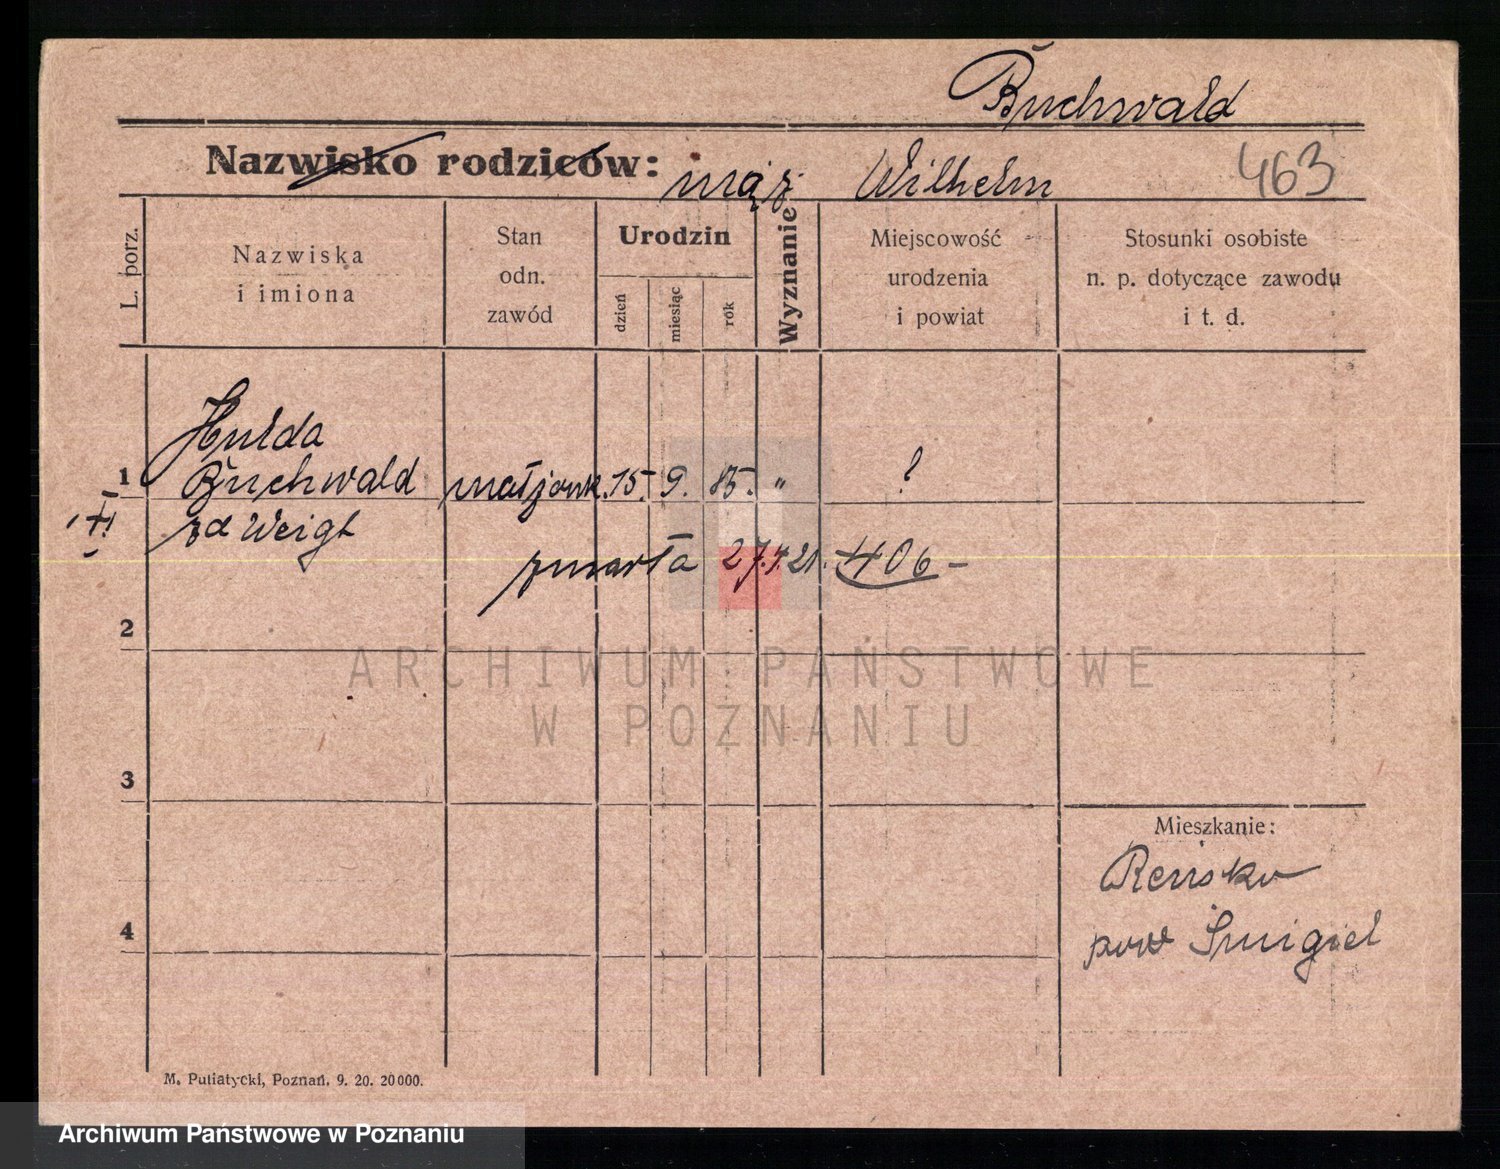 Buchwald
Nazwisko rodziców: mąż Wilhelm 463
L. porz.
Nazwiska i imiona
Stan odn. zawód
Urodzin
dzień
miesiąc
rok
Wyznanie
Miejscowość urodzenia i powiat
Stosunki osobiste n. p. dotyczące zawodu i t. d.
Hulda
1 Buchwald małżonk. 15. 9. 85. " ?
zd Weigt
zmarła 27.4.21. 406 –
2
ARCHIWUM PAŃSTWOWE
W POZNANIU
3
Mieszkanie:
Reńsko
4
pow Śmigiel
M. Putiatycki, Poznań. 9. 20. 20000.
Archiwum Państwowe w Poznaniu